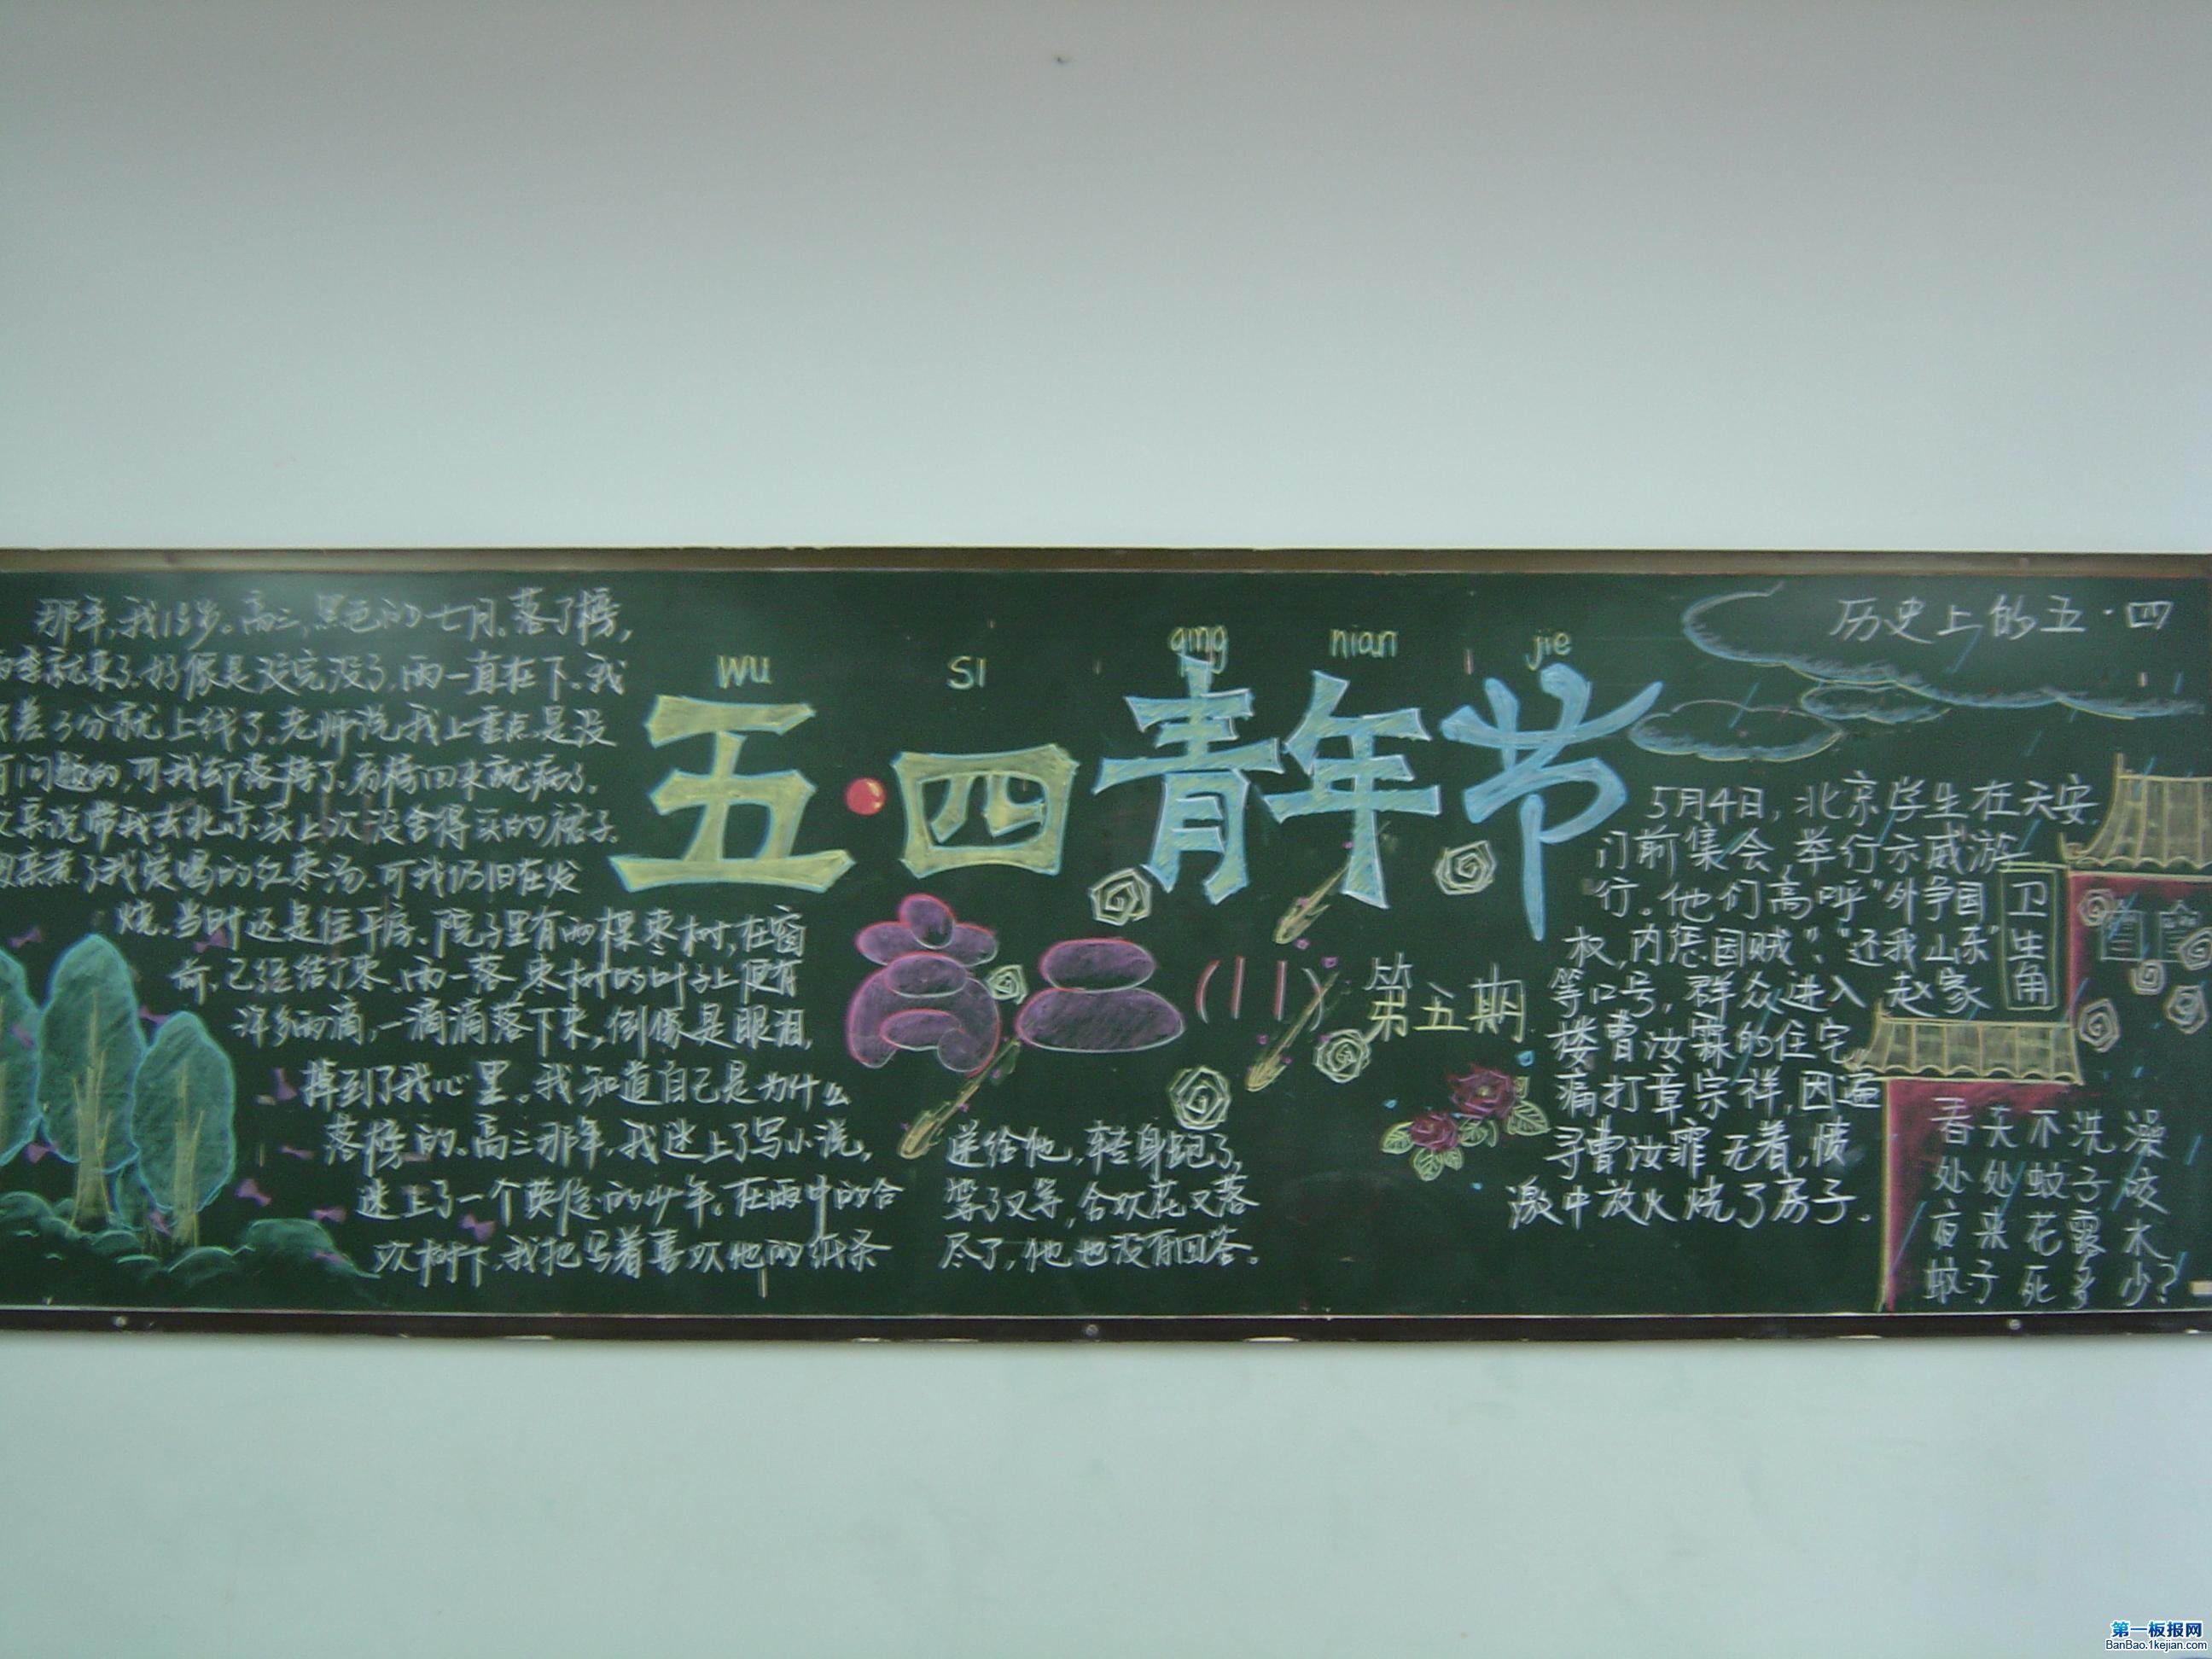 那年,我18岁。高三,黑色的七月。落了榜,
雨季就来了。好像是没完没了,雨一直在下。我
差了分就上线了。老师说,我上重点是没
有问题的,可我却落榜了。看榜回来就病了。
父亲说带我去北京买上次没舍得买的裙子。
母亲煮了我爱喝的红枣汤。可我仍旧在发
烧。当时还是住平房、院子里有两棵枣树,在窗
前。已经结了枣。雨一落枣树的叶子上便有
许多雨滴,一滴滴落下来,倒像是眼泪,
掉到了我心里。我知道自己是为什么
落榜的。高三那年,我迷上了写小说,
迷上了一个英俊的少年。在雨中的合
欢树下,我把写着喜欢他的纸条
递给他,转身跑了。
等了又等,合欢花又落
尽了,他也没有回答。
wu si qing nian jie
五·四青年节
高二(11)
第五期
历史上的五·四
5月4日,北京学生在天安
门前集会,举行示威游
行。他们高呼“外争国
权,内惩国贼”、“还我山东”
等口号,群众进入赵家
楼曹汝霖的住宅
痛打章宗祥,因遍
寻曹汝霏无着,愤
激中放火烧了房子。
卫生角
春天不洗澡
处处蚊子咬
夜来花露水
蚊子死多少?
第一板报网
BanBao.1kejian.com